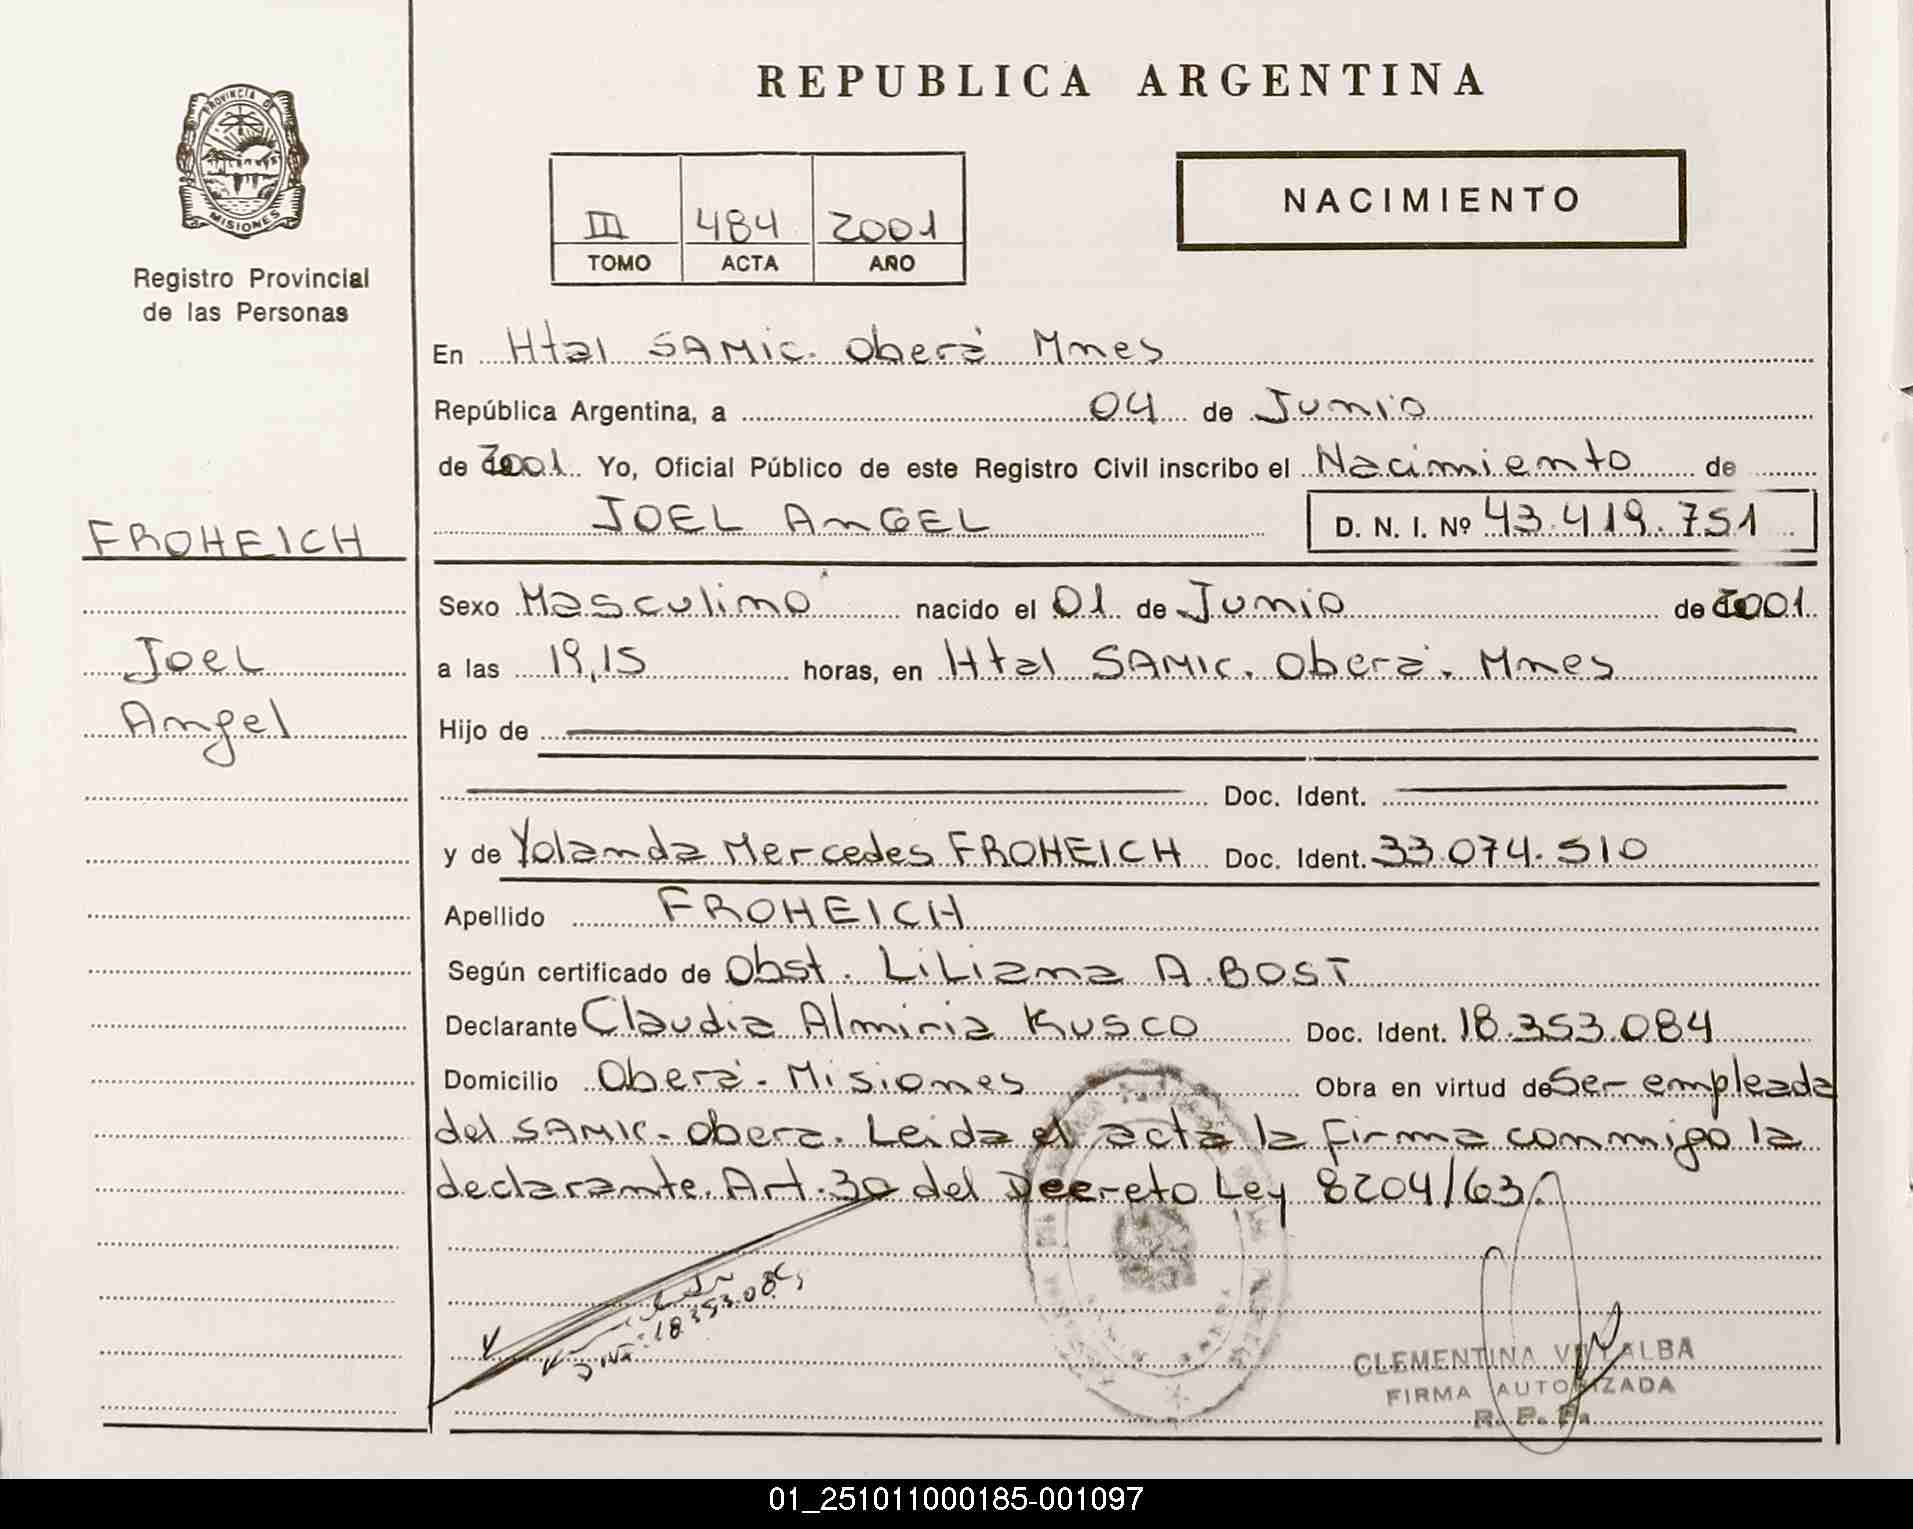 REPUBLICA ARGENTINA
PROVINCIA DE
MISIONES
Registro Provincial
de las Personas
III 484 2001
TOMO ACTA AÑO
NACIMIENTO
En Htal SAMIC. Oberá Mnes
República Argentina, a 04 de Junio
de 2001. Yo, Oficial Público de este Registro Civil inscribo el Nacimiento de
JOEL ANGEL D. N. I. Nº 43.419.751
FROHEICH
Joel
Angel
Sexo Masculino nacido el 01 de Junio de 2001.
a las 19,15 horas, en Htal SAMIC. Oberá. Mnes
Hijo de
Doc. Ident.
y de Yolanda Mercedes FROHEICH Doc. Ident. 33.074.510
Apellido FROHEICH
Según certificado de Obst. LiLiana A. BOST
Declarante Claudia Almiria KUSCO Doc. Ident. 18.353.084
Domicilio Oberá - Misiones Obra en virtud de Ser empleada
del SAMIC - Obera. Leida el acta la firma conmigo la
declarante. Art. 30 del Decreto Ley 8204/63.
18.353.084
CLEMENTINA VILLALBA
FIRMA AUTORIZADA
R. P. P.
01_251011000185-001097